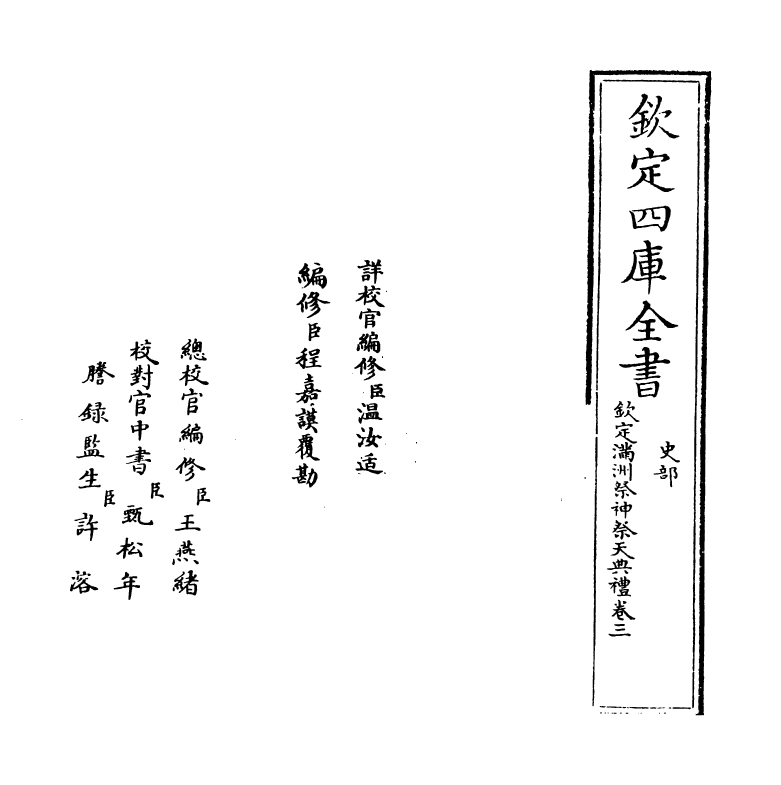 欽定四庫全書
史部
欽定滿洲祭神祭天典禮卷三
詳校官編修臣温汝适
編修臣程嘉謨覆勘
總校官編修臣王燕緒
校對官中書臣甄松年
謄録監生臣許溶